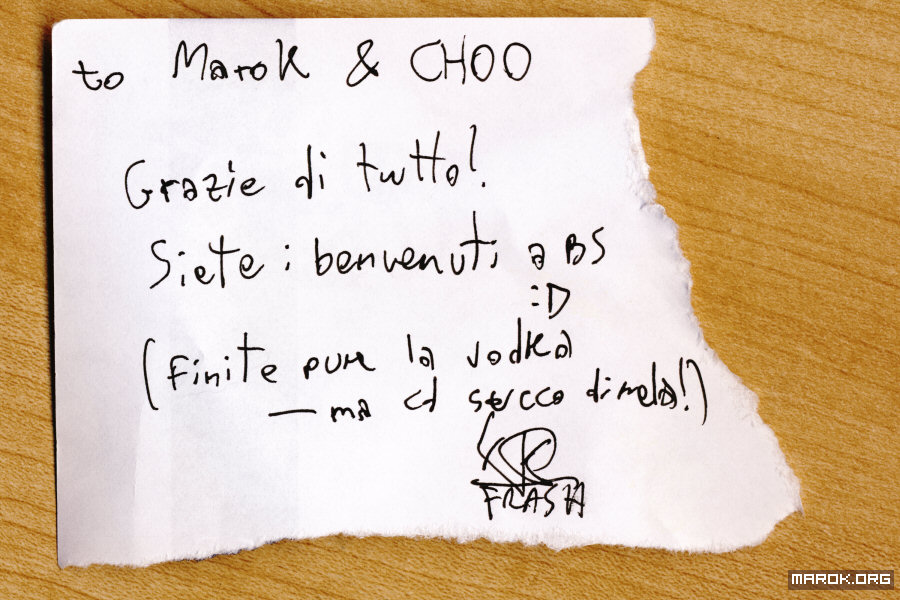 to Marok & CHOO
Grazie di tutto!
Siete i benvenuti a BS
:D
(Finite pure la vodka
— ma succo di mela!)
FRASH
MAROK.ORG